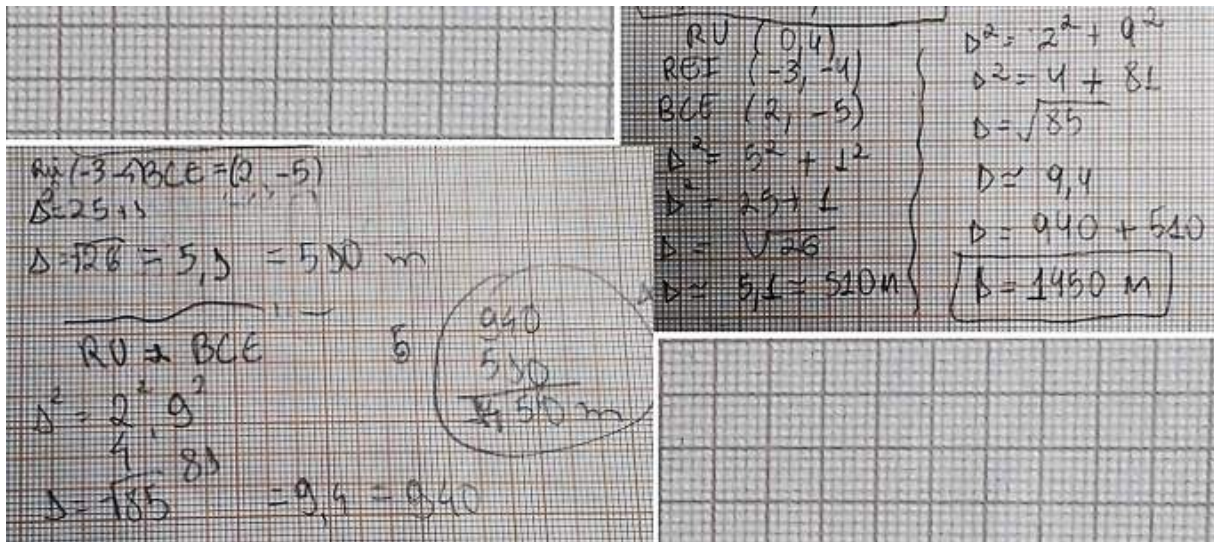 (-3 BCE = (2, -5)
D² = 25 + 1
D = √26 = 5,1 = 510 m
RU BCE
D² = 2², 9²
4 81
D = √85 = 9,4 = 940
5
940
510
1450 m
RU (0,4)
REI (-3, -4)
BCE (2, -5)
D² = 5² + 1²
D² = 25 + 1
D = √26
D ≃ 5,1 = 510 m
D² = 2² + 9²
D² = 4 + 81
D = √85
D ≃ 9,4
D = 940 + 510
D = 1450 m